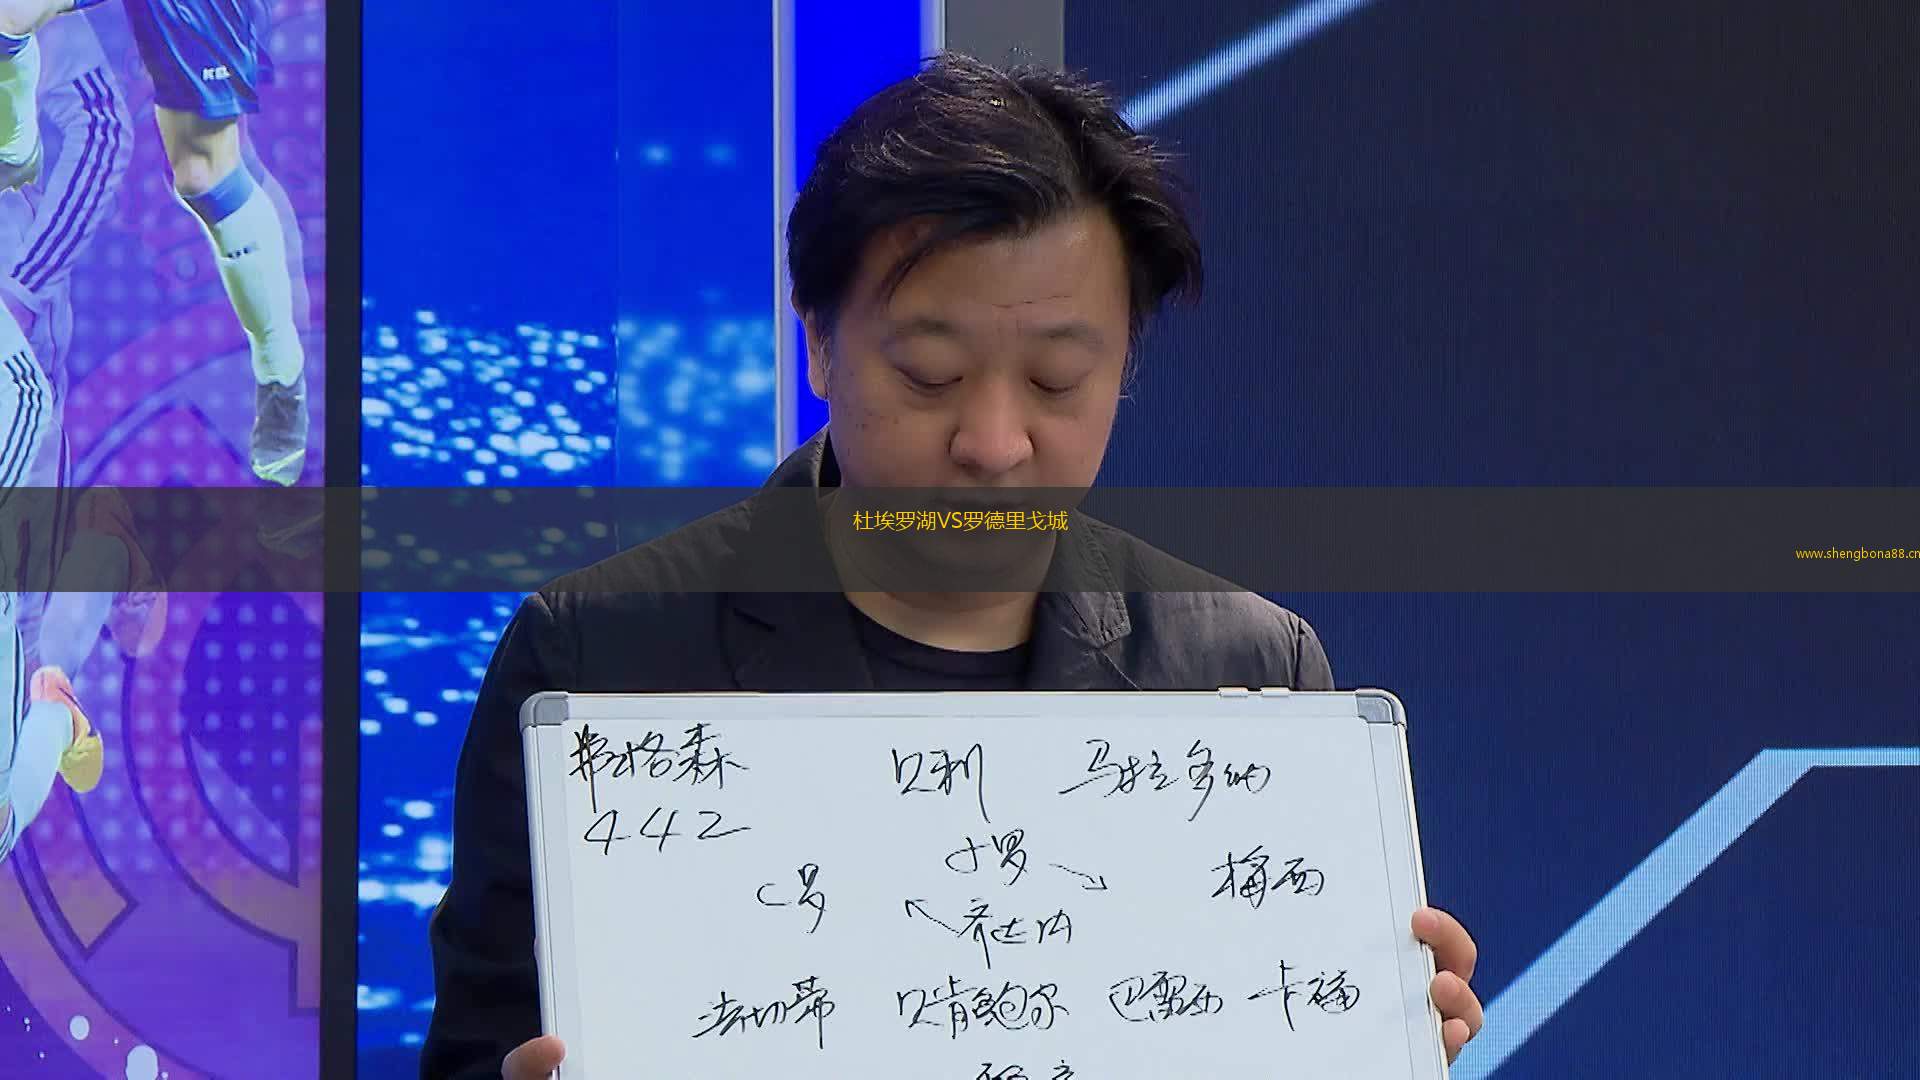 杜埃罗湖VS罗德里戈城
www.shengbona88.cn
弗格森 贝利 马拉多纳
442
小罗
C罗 梅西
齐达内
法切蒂 贝肯鲍尔 巴雷西 卡福